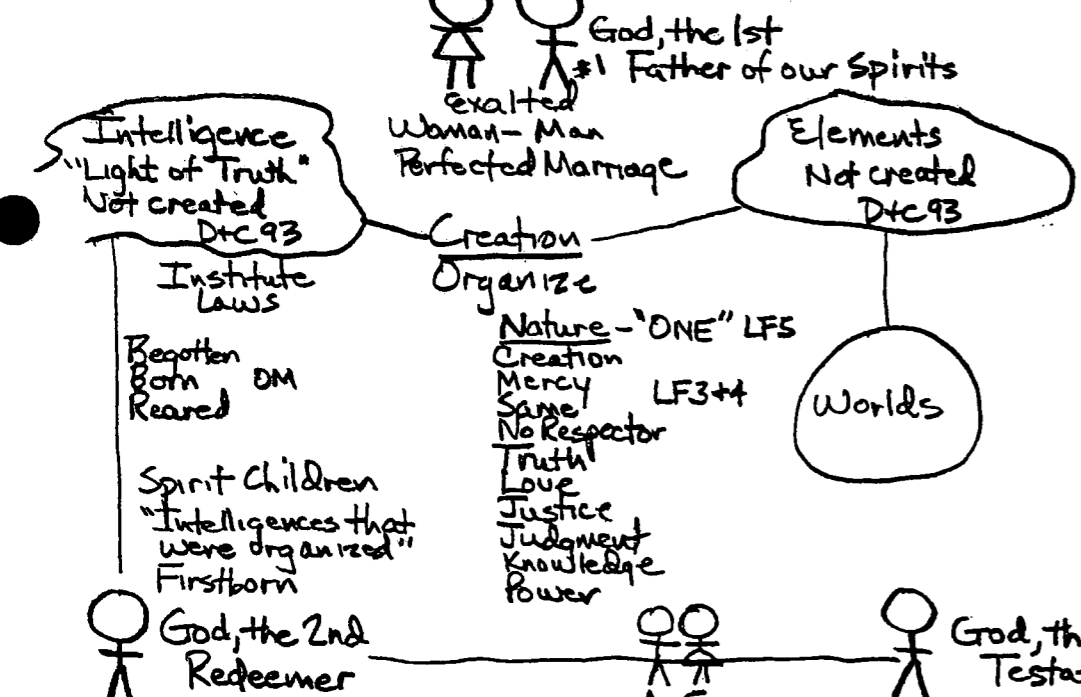 God, the 1st
#1 Father of our Spirits
exalted
Woman - Man
Perfected Marriage
Intelligence
"Light of Truth"
Not created
D+C 93
Elements
Not created
D+C 93
Creation
Organize
Institute
Laws
Nature - "ONE" LF5
Creation
Mercy
Same
No Respector
Truth
Love
Justice
Judgment
Knowledge
Power
LF3+4
Worlds
Begotten
Born OM
Reared
Spirit Children
"Intelligences that
were organized"
Firstborn
God, the 2nd
Redeemer
God, th
Testa